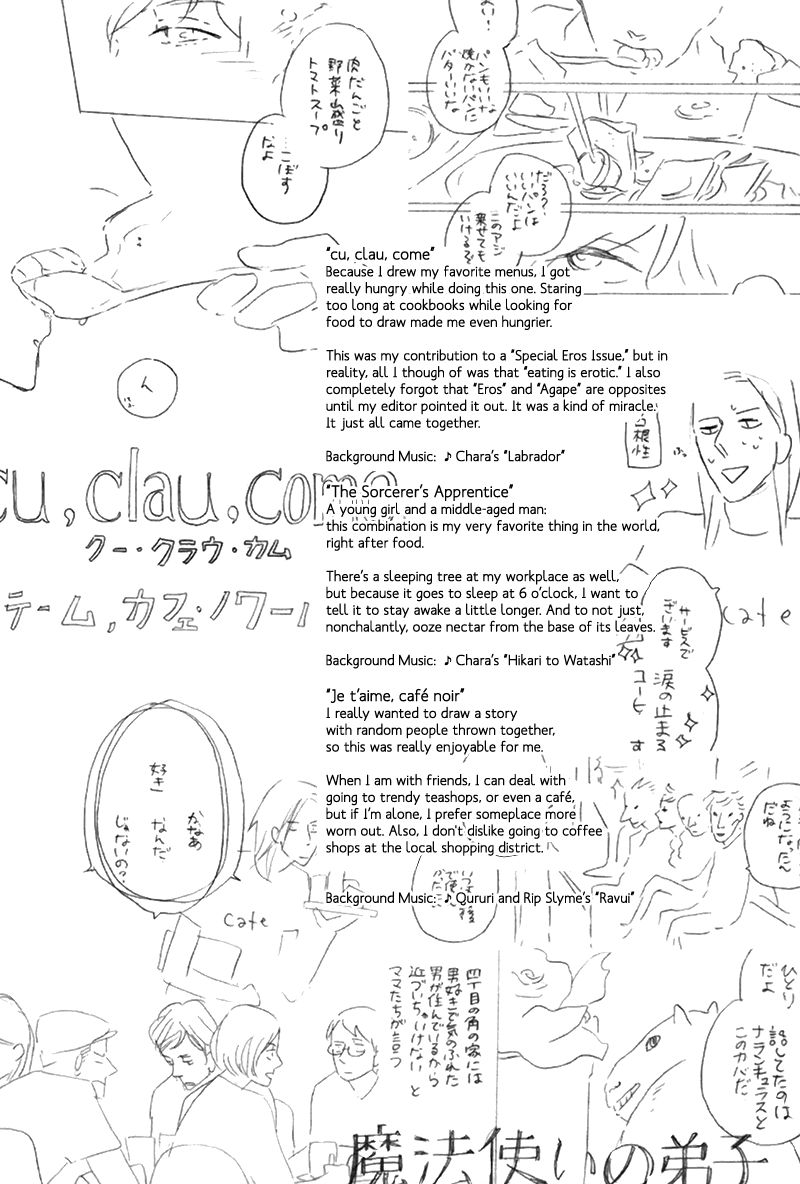 よい!
パンもいいな
焼かないパンに
バターいいな
肉だんごと
野菜盛り
トマトスープ
…こぼす
なよ
だろう?
いいパンは
いいんだよ
このアジ
乗せても
いけるぞ
"cu, clau, come"
Because I drew my favorite menus, I got
really hungry while doing this one. Staring
too long at cookbooks while looking for
food to draw made me even hungrier.
This was my contribution to a "Special Eros Issue," but in
reality, all I though of was that "eating is erotic." I also
completely forgot that "Eros" and "Agape" are opposites
until my editor pointed it out. It was a kind of miracle.
It just all came together.
Background Music: ♪ Chara's "Labrador"
根性
ん
cu, clau, come
クー・クラウ・カム
テーム, カフェ・ノワール
"The Sorcerer's Apprentice"
A young girl and a middle-aged man:
this combination is my very favorite thing in the world,
right after food.
There's a sleeping tree at my workplace as well,
but because it goes to sleep at 6 o'clock, I want to
tell it to stay awake a little longer. And to not just,
nonchalantly, ooze nectar from the base of its leaves.
Background Music: ♪ Chara's "Hikari to Watashi"
サービスで
ございます
涙の止まる
コーヒー
す
cafe
"Je t'aime, café noir"
I really wanted to draw a story
with random people thrown together,
so this was really enjoyable for me.
When I am with friends, I can deal with
going to trendy teashops, or even a café,
but if I'm alone, I prefer someplace more
worn out. Also, I don't dislike going to coffee
shops at the local shopping district.
Background Music: ♪ Qururi and Rip Slyme's "Ravui"
かなあ
好き なんだ
じゃないの?
cafe
ようになったん
だね
四丁目の角の家には
男好きで気のふれた
男が住んでいるから
近づいちゃいけない と
ママたちが言う
ひとり
だよ
話してたのは
ナランチュラスと
このカバだ
魔法使いの弟子